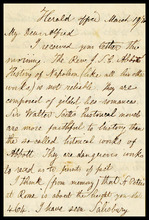 Herald Office March 19/
My Dear Alfred
I received your letter this
morning. The Rev J. S. C. Abbott
History of Napoleon, like all his other
works, is not reliable. They are
composed of gilded lies & romances.
Sir Walter Scotts historical novels
are more faithful to history than
the so-called historical works of
Abbott. They are dangerous works
to read as to points of fact.
I think (from memory) that St Peters
at Rome is about the height you
I have seen Salisbury